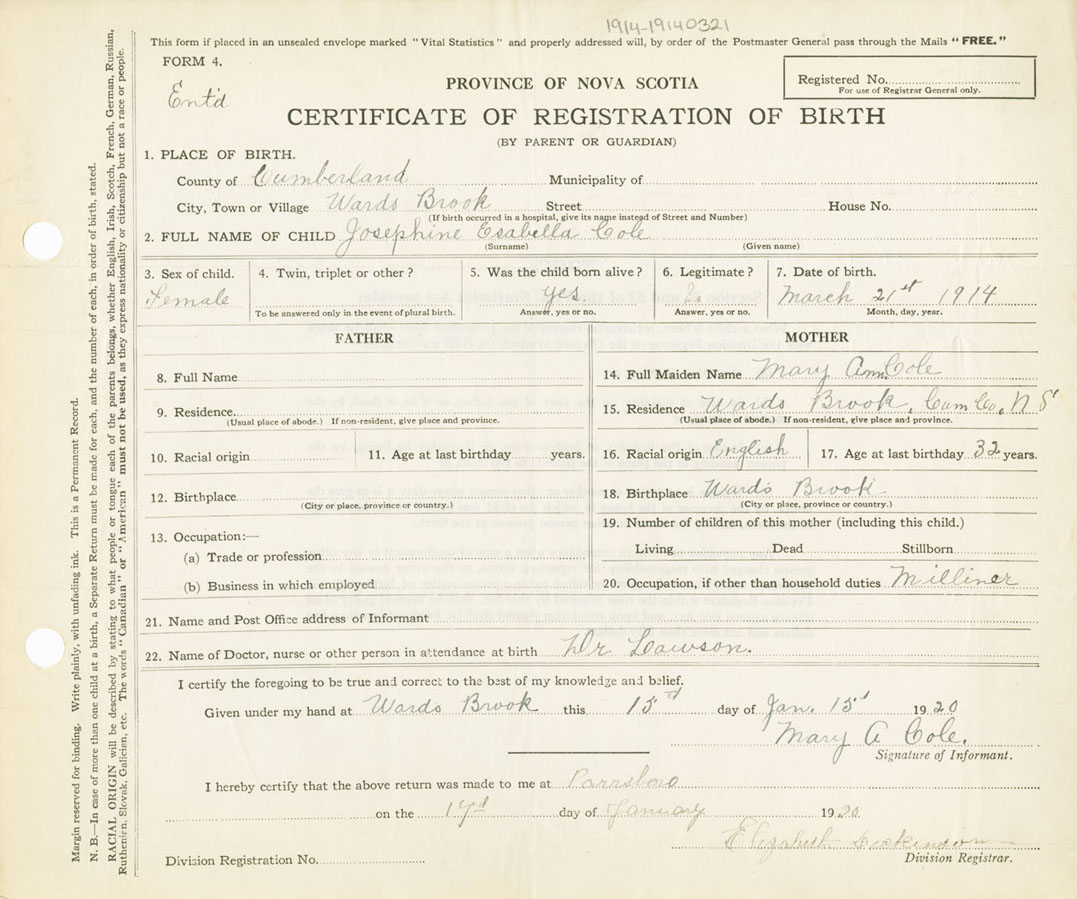 1914-19140321
This form if placed in an unsealed envelope marked "Vital Statistics" and properly addressed will, by order of the Postmaster General pass through the Mails "FREE."
FORM 4.
Ent'd
PROVINCE OF NOVA SCOTIA
Registered No.
For use of Registrar General only.
CERTIFICATE OF REGISTRATION OF BIRTH
(BY PARENT OR GUARDIAN)
1. PLACE OF BIRTH.
County of Cumberland Municipality of
City, Town or Village Wards Brook Street House No.
(If birth occurred in a hospital, give its name instead of Street and Number)
2. FULL NAME OF CHILD Josephine Esabella Cole
(Surname) (Given name)
3. Sex of child. 4. Twin, triplet or other? 5. Was the child born alive? 6. Legitimate? 7. Date of birth.
Female yes. March 21st 1914
To be answered only in the event of plural birth. Answer, yes or no. Answer, yes or no. Month, day, year.
FATHER MOTHER
8. Full Name
14. Full Maiden Name Mary Ann Cole
9. Residence.
15. Residence Wards Brook, Cum Co, N S
(Usual place of abode.) If non-resident, give place and province.
(Usual place of abode.) If non-resident, give place and province.
10. Racial origin 11. Age at last birthday years.
16. Racial origin English 17. Age at last birthday 32 years.
12. Birthplace
18. Birthplace Wards Brook
(City or place, province or country.)
(City or place, province or country.)
19. Number of children of this mother (including this child.)
13. Occupation:—
Living Dead Stillborn
(a) Trade or profession
(b) Business in which employed
20. Occupation, if other than household duties Milliner
21. Name and Post Office address of Informant
22. Name of Doctor, nurse or other person in attendance at birth Dr Lawson.
I certify the foregoing to be true and correct to the best of my knowledge and belief.
Given under my hand at Wards Brook this 15 day of Jan. 15 1920
Mary A Cole.
Signature of Informant.
I hereby certify that the above return was made to me at Parrsboro
on the 17 day of January 1920
Elizabeth Dickinson
Division Registrar.
Division Registration No.
Margin reserved for binding. Write plainly, with unfading ink. This is a Permanent Record.
N. B.—In case of more than one child at a birth, a Separate Return must be made for each, and the number of each, in order of birth, stated.
RACIAL ORIGIN will be described by stating to what people or tongue each of the parents belongs, whether English, Irish, Scotch, French, German, Russian,
Ruthenien, Slovak, Galician, etc. The words "Canadian" or "American" must not be used, as they express nationality or citizenship but not a race or people.